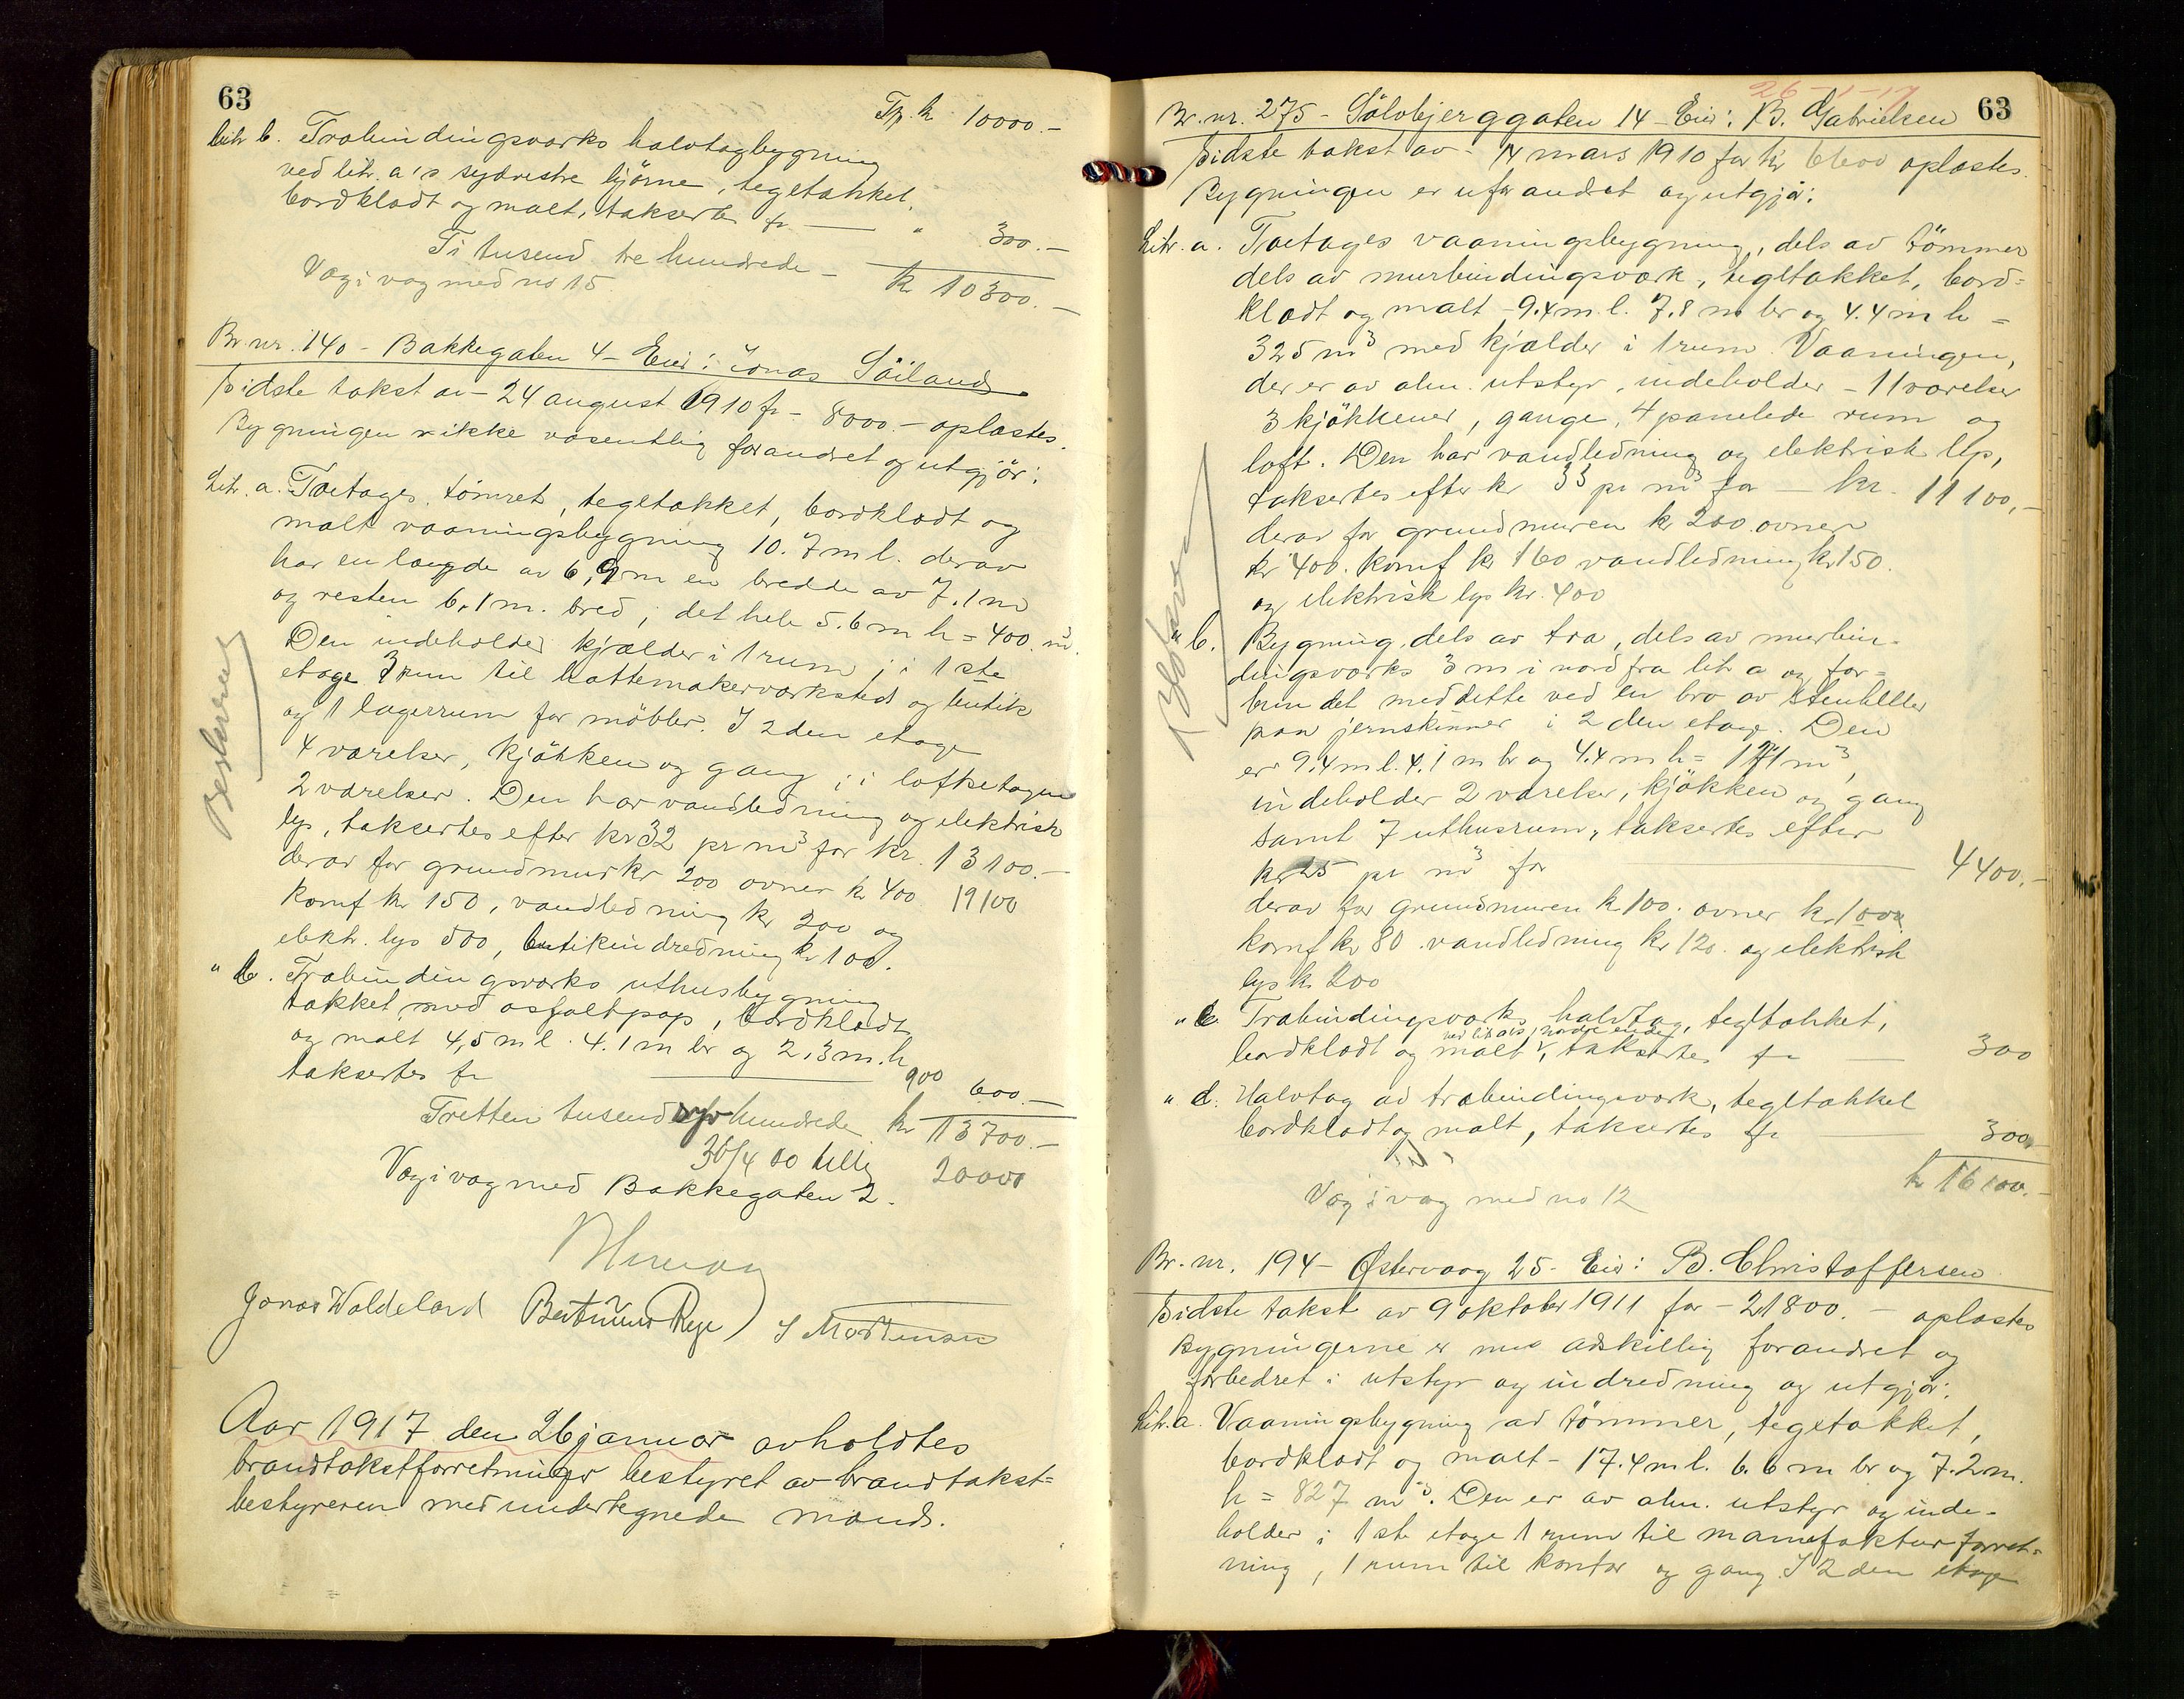 63
Trp. kr 10000.-
Litr b. Træbindingsværks halvtagbygning
ved litr. a's sydvestre hjörne, tegltækket,
bordklædt og malt, takserte fr — " 300.-
Ti tusend tre hundrede - kr 10300.-
Væg i væg med no 15
Br. nr. 140 - Bakkegaten 4 - Eier: Jonas Söiland
Sidste takst av - 24 august 1910 fr - 8000.- oplæstes.
Bygningen er ikke væsentlig forandret og utgjör:
Litr. a. Toetages, tömret, tegltækket, bordklædt og
malt vaaningsbygning 10.7 m l. derav
har en længde av 6,9 m en bredde av 7.1 m
og resten 6,1 m. bred, det hele 5.6 m h = 400 m³.
Den indeholder kjælder i 1 rum; i 1ste
etage 3 rum til hattemakerværksted og butik
og 1 lagerrum for möbler. I 2den etage
4 værelser, kjökken og gang; i loftsetagen
2 værelser. Den har vandledning og elektrisk
lys, taksertes efter kr 32 pr m³ for kr. 13100.-
derav for grundmur kr 200 ovner kr 400 19100
komf kr 150, vandledning kr 200 og
elektr. lys 500, butikindredning kr 100.
" b. Træbindingsværks uthusbygning
tækket med asfaltpap, bordklædt
og malt 4,5 m l. 4.1 m br og 2.3 m. h
taksertes fr — 900 600.-
Tretten tusend syv hundrede kr 13700.-
30/4 80 tillæg 20000
Væg i væg med Bakkegaten 2.
Beskreven
Jonas Waldeland Bertinius Rege J Mortensen
Aar 1917 den 26 januar avholdtes
brandtakstforretninger bestyret av brandtakst=
bestyreren med undertegnede mænd.
26-1-17
63
Br. nr. 275 - Sölvbjerggaten 14 - Eier: B. Gabrielsen
Sidste takst av - 14 mars 1910 for kr 6600 oplæstes.
Bygningen er uforandret og utgjör:
Litr. a. Toetages vaaningsbygning, dels av tömmer
dels av murbindingsværk, tegltækket, bord=
klædt og malt - 9.4 m l. 7.8 m br og 4.4 m h =
325 m³ med kjælder i 1 rum. Vaaningen,
der er av alm. utstyr, indeholder - 11 værelser
3 kjökkener, gange, 4 panelede rum og
loft. Den har vandledning og elektrisk lys,
taksertes efter kr 33 pr m³ for — kr. 11100,-
derav for grundmuren kr 200 ovner
kr 400. komf kr 160 vandledning kr 150.
og elektrisk lys kr. 400
" b. Bygning, dels av træ, dels av murbin-
dingsværks 3 m i nord fra litr a og for=
bundet med dette ved en bro av stenheller
paa jernskinner i 2den etage. Den
er 9.4 m l. 4.1 m br og 4.4 m h = 171 m³,
indeholder 2 værelser, kjökken og gang
samt 7 uthusrum, taksertes efter
kr 25 pr m³ for — 4400.-
derav for grundmuren kr 100. ovner kr 100
komf kr 80. vandledning kr 120. og elektrisk
lys kr 200
" c. Træbindingsværks halvtag, tegltækket,
ved litr a's nordre ende
bordklædt og malt, taksertes fr — 300
" d. Halvtag av træbindingsværk, tegltækket
bordklædt og malt, taksertes fr — 300
kr 16100.-
Væg i væg med no 12
Br. nr. 194 - Østervaag 25 - Eier: B. Christoffersen
Sidste takst av 9 oktober 1911 for - 21800. - oplæstes
Bygningerne er nu adskillig forandret og
forbedret i utstyr og indredning og utgjör:
Litr. a. Vaaningsbygning av tömmer, tegltækket,
bordklædt og malt - 17.4 m l. 6.6 m br og 7.2 m.
h = 827 m³. Den er av alm. utstyr og inde-
holder i 1ste etage 1 rum til manufakturforret=
ning, 1 rum til kontor og gang. I 2den etage